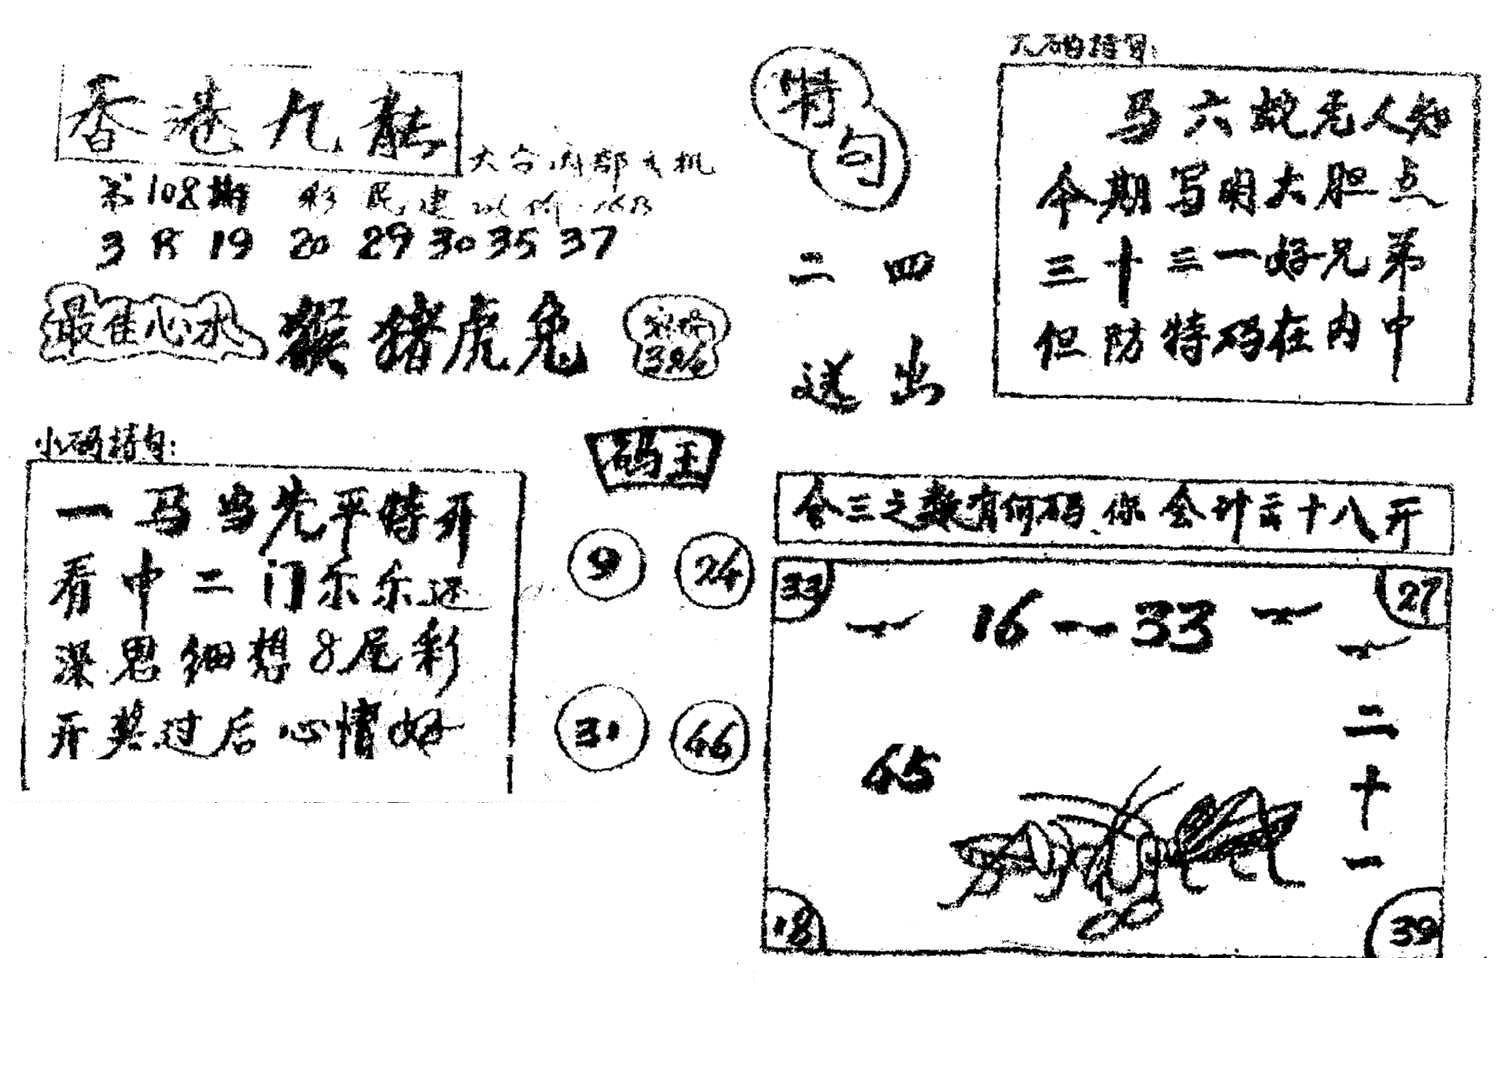 香港九龍
大台内部之机
第108期 彩民建议价:16B
3 8 19 20 29 30 35 37
最佳心水 猴猪虎兔
小码特句:
一马当先平特开
看中二门乐乐还
深思细想8尾彩
开奖过后心情好
码王
9 24
31 46
特句
二四
送出
大码特句:
马六蛇羌人知
今期写明大胆点
三十三一好兄弟
但防特码在内中
合三之数有何码、你会计云十八开
33 27
一 16—33 一
二十一
45
18 39